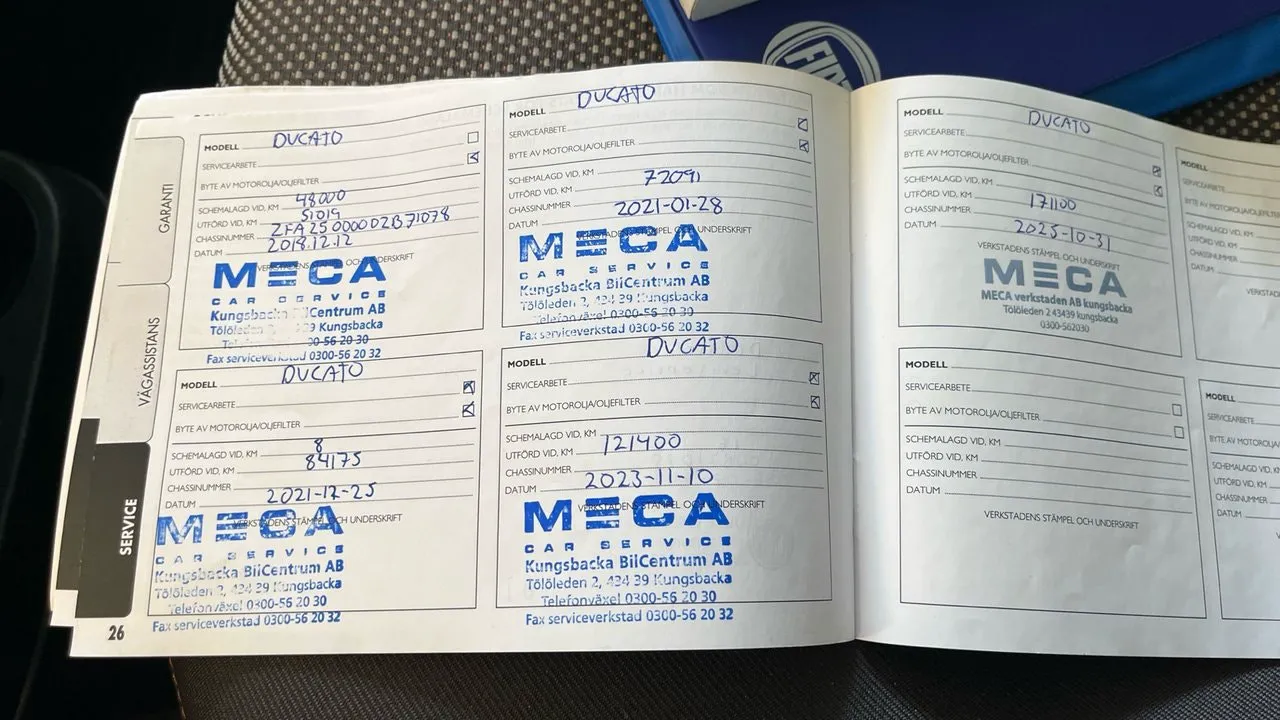 FIAT
GARANTI
VÄGASSISTANS
SERVICE
26
MODELL DUCATO
SERVICEARBETE
BYTE AV MOTOROLJA/OLJEFILTER
SCHEMALAGD VID, KM 48000
UTFÖRD VID, KM 51019
CHASSINUMMER ZFA25000002B71078
DATUM 2018.12.12
VERKSTADENS STÄMPEL OCH UNDERSKRIFT
MECA
CAR SERVICE
Kungsbacka BilCentrum AB
Tölöleden 2, 39 Kungsbacka
00-56 20 30
Fax serviceverkstad 0300-56 20 32
MODELL DUCATO
SERVICEARBETE
BYTE AV MOTOROLJA/OLJEFILTER
SCHEMALAGD VID, KM
UTFÖRD VID, KM 72091
CHASSINUMMER
DATUM 2021-01-28
VERKSTADENS STÄMPEL OCH UNDERSKRIFT
MECA
CAR SERVICE
Kungsbacka BilCentrum AB
Tölöleden 2, 434 39 Kungsbacka
Telefonväxel 0300-56 20 30
Fax serviceverkstad 0300-56 20 32
MODELL DUCATO
SERVICEARBETE
BYTE AV MOTOROLJA/OLJEFILTER
SCHEMALAGD VID, KM 8
UTFÖRD VID, KM 84175
CHASSINUMMER
DATUM 2021-12-25
VERKSTADENS STÄMPEL OCH UNDERSKRIFT
MECA
CAR SERVICE
Kungsbacka BilCentrum AB
Tölöleden 2, 434 39 Kungsbacka
Telefonväxel 0300-56 20 30
Fax serviceverkstad 0300-56 20 32
MODELL DUCATO
SERVICEARBETE
BYTE AV MOTOROLJA/OLJEFILTER
SCHEMALAGD VID, KM
UTFÖRD VID, KM 121400
CHASSINUMMER
DATUM 2023-11-10
VERKSTADENS STÄMPEL OCH UNDERSKRIFT
MECA
CAR SERVICE
Kungsbacka BilCentrum AB
Tölöleden 2, 434 39 Kungsbacka
Telefonväxel 0300-56 20 30
Fax serviceverkstad 0300-56 20 32
MODELL DUCATO
SERVICEARBETE
BYTE AV MOTOROLJA/OLJEFILTER
SCHEMALAGD VID, KM
UTFÖRD VID, KM 171100
CHASSINUMMER
DATUM 2025-10-31
VERKSTADENS STÄMPEL OCH UNDERSKRIFT
MECA
MECA verkstaden AB kungsbacka
Tölöleden 2 43439 kungsbacka
0300-562030
MODELL
SERVICEARBETE
BYTE AV MOTOROLJA/OLJEFILTER
SCHEMALAGD VID, KM
UTFÖRD VID, KM
CHASSINUMMER
DATUM
VERKSTADENS STÄMPEL OCH UNDERSKRIFT
MODELL
SERVICEARBETE
BYTE AV MOTOROLJA/OLJEFILTER
SCHEMALAGD VID, KM
UTFÖRD VID, KM
CHASSINUMMER
DATUM
MODELL
SERVICEARBETE
BYTE AV MOTOROLJA/OLJEFILTER
SCHEMALAGD VID, KM
UTFÖRD VID, KM
CHASSINUMMER
DATUM